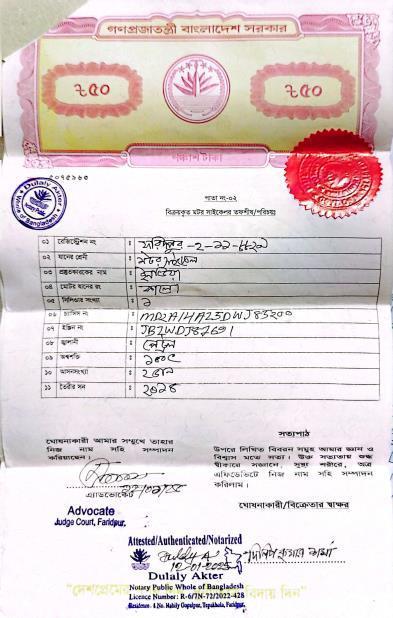 গণপ্রজাতন্ত্রী বাংলাদেশ সরকার
৳৫০ ৳৫০
পঞ্চাশ টাকা
Dulaly Akter
Notary Public
Whole of Bangladesh
পাতা নং-০২
বিক্রয়কৃত মটর সাইকেলের তফশীল/পরিচয়ঃ
০১ রেজিস্ট্রেশন নং : ফরিদপুর
০২ যানের শ্রেনী : মটর সাইকেল
০৩ প্রস্তুতকারকের নাম : ইন্ডিয়া
০৪ মোটর যানের রং : কালো
০৫ সিলিন্ডার সংখ্যা : ১
০৬ চ্যাসিস নং : MD2A14AZ5DWJ83200
০৭ ইঞ্জিন নং : JBZWDJ87691
০৮ জ্বালানী : পেট্রল
০৯ অশ্বশক্তি :
১০ আসনসংখ্যা : ২ জন
১১ তৈরীর সন :
ঘোষনাকারী আমার সম্মুখে তাহার
নিজ নাম সহি সম্পাদন
করিয়াছেন।
এ্যাডভোকেট
Advocate
Judge Court, Faridpur.
সত্যপাঠ
উপরে লিখিত বিবরন সমুহ আমার জ্ঞান ও
বিশ্বাস মতে সত্য। উক্ত সত্যতায় শুদ্ধ
স্বীকারে সজ্ঞানে, সুস্থ্য শরীরে, অত্র
এফিডেভিটে নিজ নাম সহি সম্পাদন
করিলাম।
ঘোষনাকারী/বিক্রেতার স্বাক্ষর
Attested/Authenticated/Notarized
Dulaly A
12-01-2025
Dulaly Akter
Notary Public Whole of Bangladesh
Licence Number: R-6/7N-72/2022-428
Residence: 4 No. Mahily Gopalpur, Tepakhola, Faridpur.